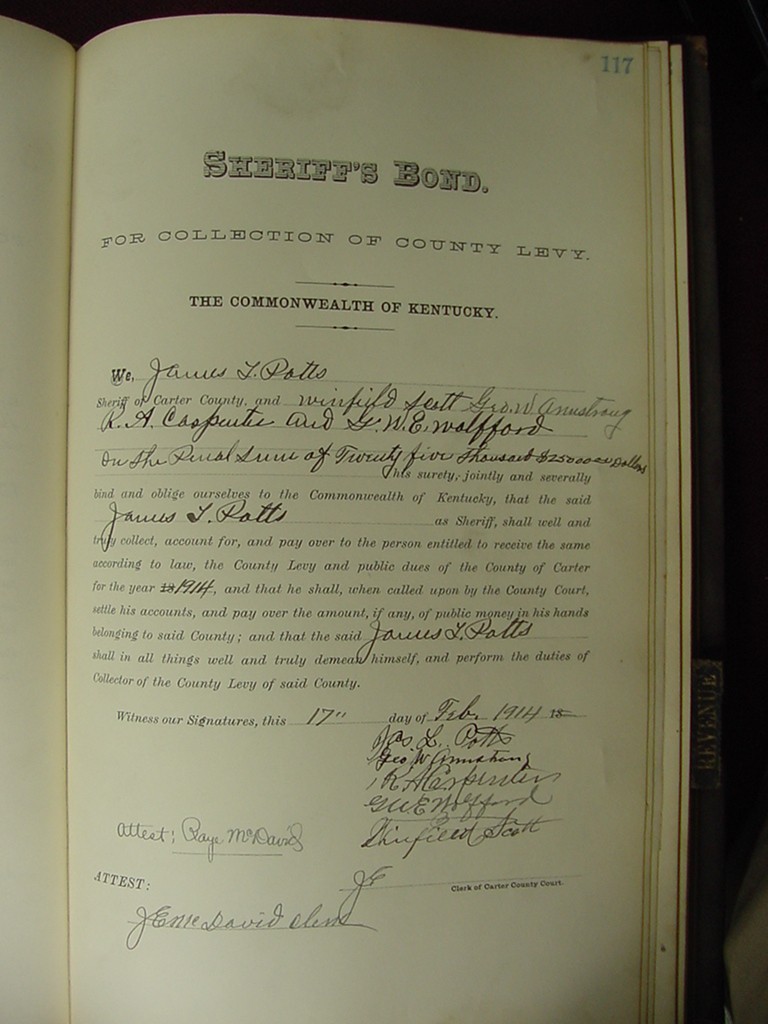 117
SHERIFF'S BOND.
FOR COLLECTION OF COUNTY LEVY.
THE COMMONWEALTH OF KENTUCKY.
We, James L. Potts
Sheriff of Carter County, and Winfield Scott Geo. W Armstrong
R. A. Carpenter and G. W. E. Wolfford
In the Penal Sum of Twenty five Thousand $25000.00 Dollars
his surety, jointly and severally
bind and oblige ourselves to the Commonwealth of Kentucky, that the said
James L. Potts as Sheriff, shall well and
truly collect, account for, and pay over to the person entitled to receive the same
according to law, the County Levy and public dues of the County of Carter
for the year 18 1914, and that he shall, when called upon by the County Court,
settle his accounts, and pay over the amount, if any, of public money in his hands
belonging to said County; and that the said James L. Potts
shall in all things well and truly demean himself, and perform the duties of
Collector of the County Levy of said County.
Witness our Signatures, this 17" day of Feb. 1914 18
Jas. L. Potts
Geo W Armstrong
R A Carpenter
G W E Wolfford
Winfield Scott
Attest; Raye McDavid
ATTEST: JE Clerk of Carter County Court.
J E McDavid Clerk
REVENUE